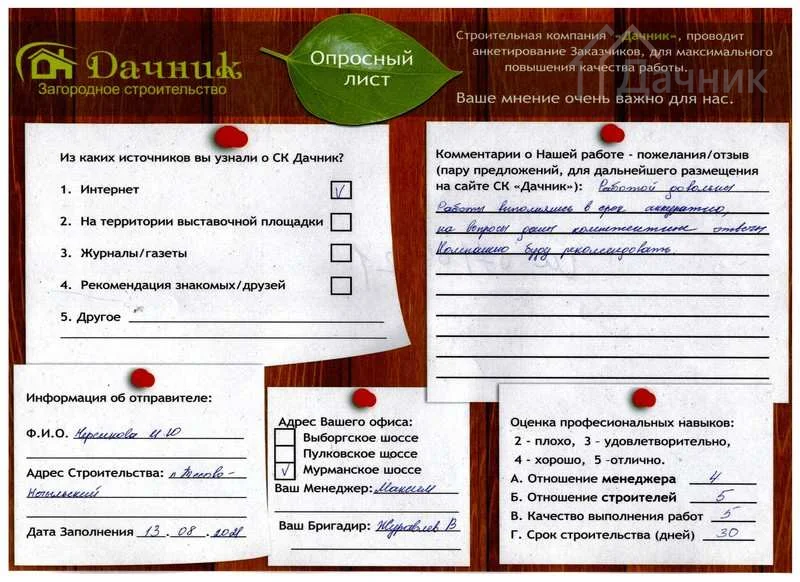 Дачник
Загородное строительство
Опросный
лист
Строительная компания «Дачник», проводит
анкетирование Заказчиков, для максимального
повышения качества работы.
Дачник
Ваше мнение очень важно для нас.
Из каких источников вы узнали о СК Дачник?
1. Интернет V
2. На территории выставочной площадки
3. Журналы/газеты
4. Рекомендация знакомых/друзей
5. Другое
Комментарии о Нашей работе - пожелания/отзыв
(пару предложений, для дальнейшего размещения
на сайте СК «Дачник»): Работой довольны
Работы выполнялись в срок аккуратно,
на вопросы даны компетентные ответы
Компанию буду рекомендовать.
Информация об отправителе:
Ф.И.О. И Ю
Адрес Строительства: п Тесово-
Нетыльский
Дата Заполнения 13.08.2021
Адрес Вашего офиса:
Выборгское шоссе
Пулковское щоссе
V Мурманское шоссе
Ваш Менеджер: Максим
Ваш Бригадир: Журавлев В
Оценка професиональных навыков:
2 - плохо, 3 - удовлетворительно,
4 - хорошо, 5 -отлично.
А. Отношение менеджера 4
Б. Отношение строителей 5
В. Качество выполнения работ 5
Г. Срок строительства (дней) 30